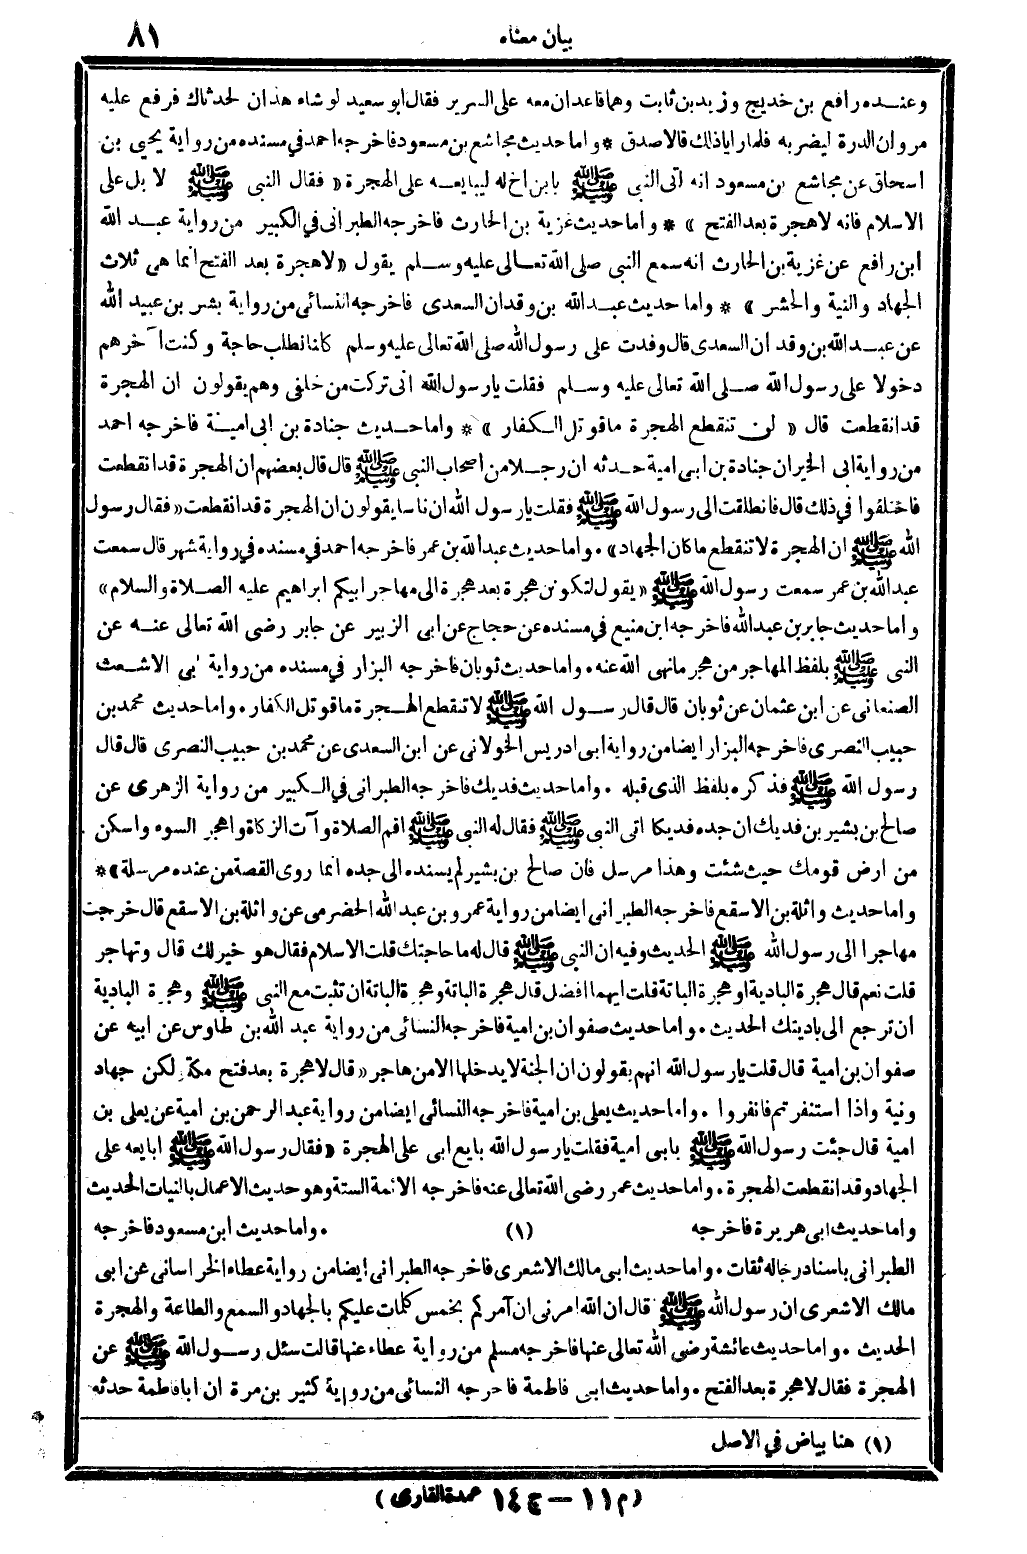 بيان معناه ٨١
وعنده رافع بن خديج وزيد بن ثابت وهما قاعدان معه على السرير فقال ابو سعيد لو شاء هذان لحدثاك فرفع عليه
مروان الدرة ليضربه فلما رايا ذلك قالا صدق * واما حديث مجاشع بن مسعود فاخرجه احمد في مسنده من رواية يحيى بن
اسحاق عن مجاشع بن مسعود انه اتى النبي ﷺ بابن اخ له ليبايعه على الهجرة « فقال النبي ﷺ لا بل على
الاسلام فانه لا هجرة بعد الفتح » * واما حديث غزية بن الحارث فاخرجه الطبرانى في الكبير من رواية عبد الله
ابن رافع عن غزية بن الحارث انه سمع النبي صلى الله تعالى عليه وسلم يقول « لا هجرة بعد الفتح انما هى ثلاث
الجهاد والنية والحشر » * واما حديث عبد الله بن وقدان السعدى فاخرجه النسائى من رواية بشر بن عبيد الله
عن عبد الله بن وقد ان السعدى قال وفدت على رسول الله صلى الله تعالى عليه وسلم كلنا نطلب حاجة وكنت آخرهم
دخولا على رسول الله صلى الله تعالى عليه وسلم فقلت يارسول الله انى تركت من خلفى وهم يقولون ان الهجرة
قد انقطعت قال « لن تنقطع الهجرة ما قوتل الكفار » * واما حديث جنادة بن ابى امية فاخرجه احمد
من رواية ابى الخير ان جنادة بن ابى امية حدثه ان رجلا من اصحاب النبي ﷺ قال قال بعضهم ان الهجرة قد انقطعت
فاختلفوا في ذلك قال فانطلقت الى رسول الله ﷺ فقلت يارسول الله ان ناسا يقولون ان الهجرة قد انقطعت « فقال رسول
الله ﷺ ان الهجرة لا تنقطع ما كان الجهاد » . واما حديث عبد الله بن عمر فاخرجه احمد في مسنده في رواية شهر قال سمعت
عبد الله بن عمر سمعت رسول الله ﷺ « يقول لتكونن هجرة بعد هجرة الى مهاجر ابيكم ابراهيم عليه الصلاة والسلام »
واما حديث جابر بن عبد الله فاخرجه ابن منيع في مسنده عن حجاج عن ابى الزبير عن جابر رضى الله تعالى عنه عن
النبى ﷺ بلفظ المهاجر من هجر ما نهى الله عنه . واما حديث ثوبان فاخرجه البزار في مسنده من رواية ابى الاشعث
الصنعانى عن ابن عثمان عن ثوبان قال قال رسول الله ﷺ لا تنقطع الهجرة ما قوتل الكفار . واما حديث محمد بن
حبيب النصرى فاخرجه البزار ايضا من رواية ابى ادريس الخولانى عن ابن السعدى عن محمد بن حبيب النصرى قال قال
رسول الله ﷺ فذكره بلفظ الذى قبله . واما حديث فديك فاخرجه الطبرانى في الكبير من رواية الزهرى عن
صالح بن بشير بن فديك ان جده فديكا اتى النبى ﷺ فقال له النبى ﷺ اقم الصلاة وآت الزكاة واهجر السوء واسكن
من ارض قومك حيث شئت وهذا مرسل فان صالح بن بشير لم يسنده الى جده انما روى القصة من عنده مرسلة » *
واما حديث واثلة بن الاسقع فاخرجه الطبرانى ايضا من رواية عمرو بن عبد الله الحضرمى عن واثلة بن الاسقع قال خرجت
مهاجرا الى رسول الله ﷺ الحديث وفيه ان النبى ﷺ قال له ما حاجتك قلت الاسلام فقال هو خير لك قال وتهاجر
قلت نعم قال هجرة البادية او هجرة الباتة قلت ايهما افضل قال هجرة الباتة وهجرة الباتة ان تثبت مع النبى ﷺ وهجرة البادية
ان ترجع الى باديتك الحديث . واما حديث صفوان بن امية فاخرجه النسائى من رواية عبد الله بن طاوس عن ابيه عن
صفوان بن امية قال قلت يارسول الله انهم يقولون ان الجنة لا يدخلها الا من هاجر « قال لا هجرة بعد فتح مكة ولكن جهاد
ونية واذا استنفرتم فانفروا . واما حديث يعلى بن امية فاخرجه النسائى ايضا من رواية عبد الرحمن بن امية عن يعلى بن
امية قال جئت رسول الله ﷺ بابى امية فقلت يارسول الله بايع ابى على الهجرة « فقال رسول الله ﷺ ابايعه على
الجهاد وقد انقطعت الهجرة . واما حديث عمر رضى الله تعالى عنه فاخرجه الائمة الستة وهو حديث الاعمال بالنيات الحديث
واما حديث ابى هريرة فاخرجه (١) . واما حديث ابن مسعود فاخرجه
الطبرانى باسناد رجاله ثقات . واما حديث ابى مالك الاشعرى فاخرجه الطبرانى ايضا من رواية عطاء الخراسانى عن ابى
مالك الاشعرى ان رسول الله ﷺ قال ان الله امرنى ان آمركم بخمس كلمات عليكم بالجهاد والسمع والطاعة والهجرة
الحديث . واما حديث عائشة رضى الله تعالى عنها فاخرجه مسلم من رواية عطاء عنها قالت سئل رسول الله ﷺ عن
الهجرة فقال لا هجرة بعد الفتح . واما حديث ابى فاطمة فاخرجه النسائى من رواية كثير بن مرة ان ابا فاطمة حدثه
(١) هنا بياض في الاصل
(م ١١ – ج ١٤ عمدة القارى)